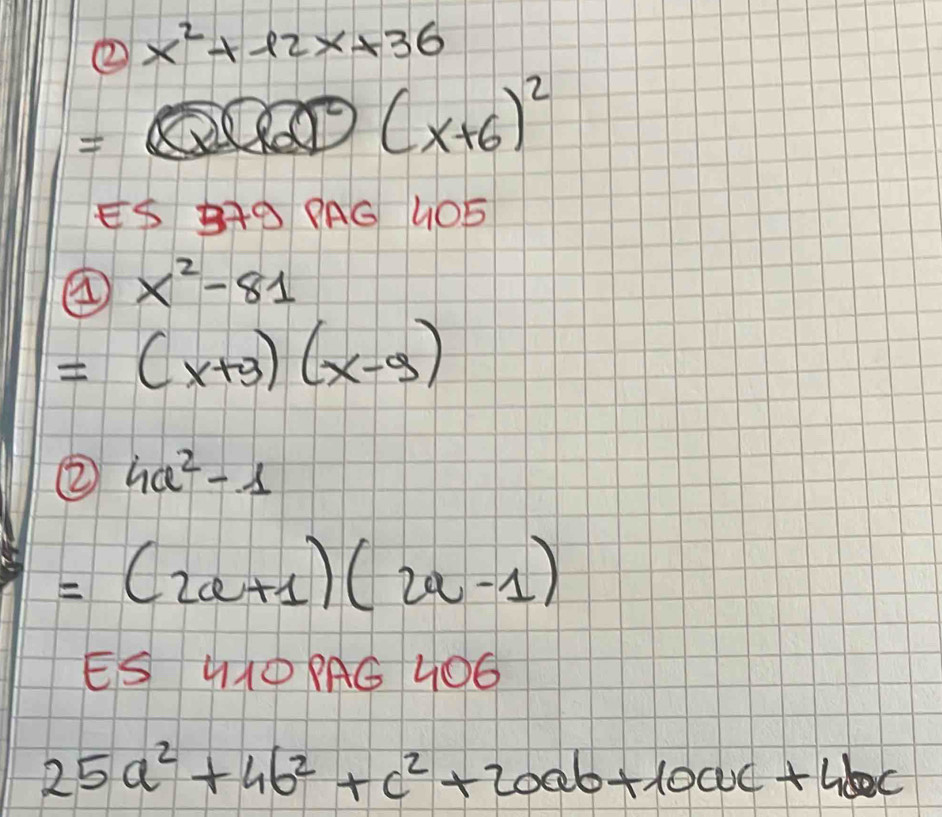 ② x² + 12x + 36
= (x+6)²
ES 379 PAG 405
① x² - 81
= (x+9) (x-9)
② 4a² - 1
= (2a+1) (2a-1)
ES 410 PAG 406
25a² + 4b² + c² + 20ab + 10ac + 4bc